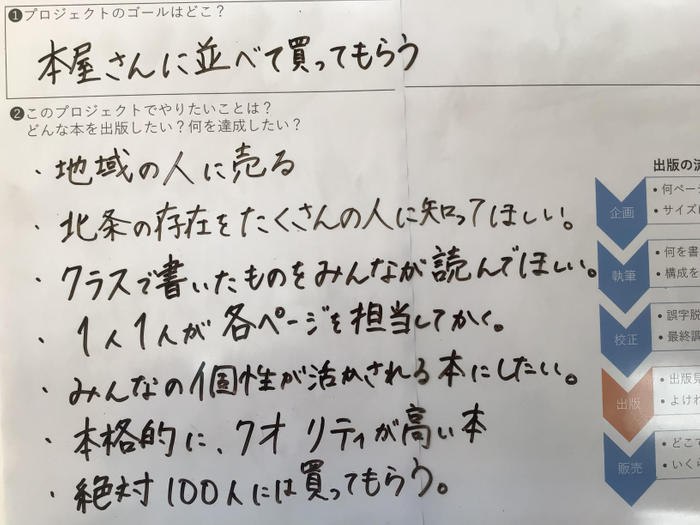 ❶プロジェクトのゴールはどこ？
本屋さんに並べて買ってもらう
❷このプロジェクトでやりたいことは？
どんな本を出版したい？何を達成したい？
・地域の人に売る
・北条の存在をたくさんの人に知ってほしい。
・クラスで書いたものをみんなが読んでほしい。
・1人1人が各ページを担当してかく。
・みんなの個性が活かされる本にしたい。
・本格的に、クオリティが高い本
・絶対100人には買ってもらう。
出版の流
企画
・何ペー
・サイズ
執筆
・何を書
・構成を
校正
・誤字脱
・最終調
出版
・出版見
・よけれ
販売
・どこで
・いくら